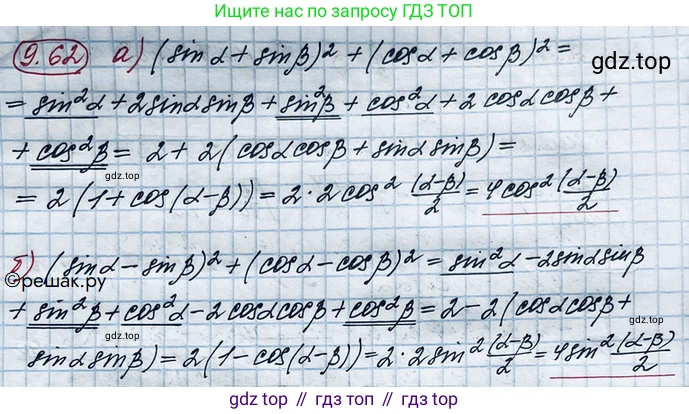 Ищите нас по запросу ГДЗ ТОП
9.62 а) (sin α + sin β)² + (cos α + cos β)² =
gdz.top
= sin²α + 2sinα sinβ + sin²β + cos²α + 2 cosα cosβ +
+ cos²β = 2 + 2(cosα cosβ + sinα sinβ) =
gdz.top
gdz.top
= 2(1 + cos(α-β)) = 2·2cos² (α-β)/2 = 4cos² (α-β)/2
б) (sinα - sinβ)² + (cosα - cosβ)² = sin²α - 2sinα sinβ
©решак.ру
+ sin²β + cos²α - 2 cosα cosβ + cos²β = 2 - 2(cosα cosβ +
gdz.top
gdz.top
sinα sinβ) = 2(1 - cos(α-β)) = 2·2sin² (α-β)/2 = 4sin² (α-β)/2
gdz.top // гдз топ // gdz.top // гдз топ